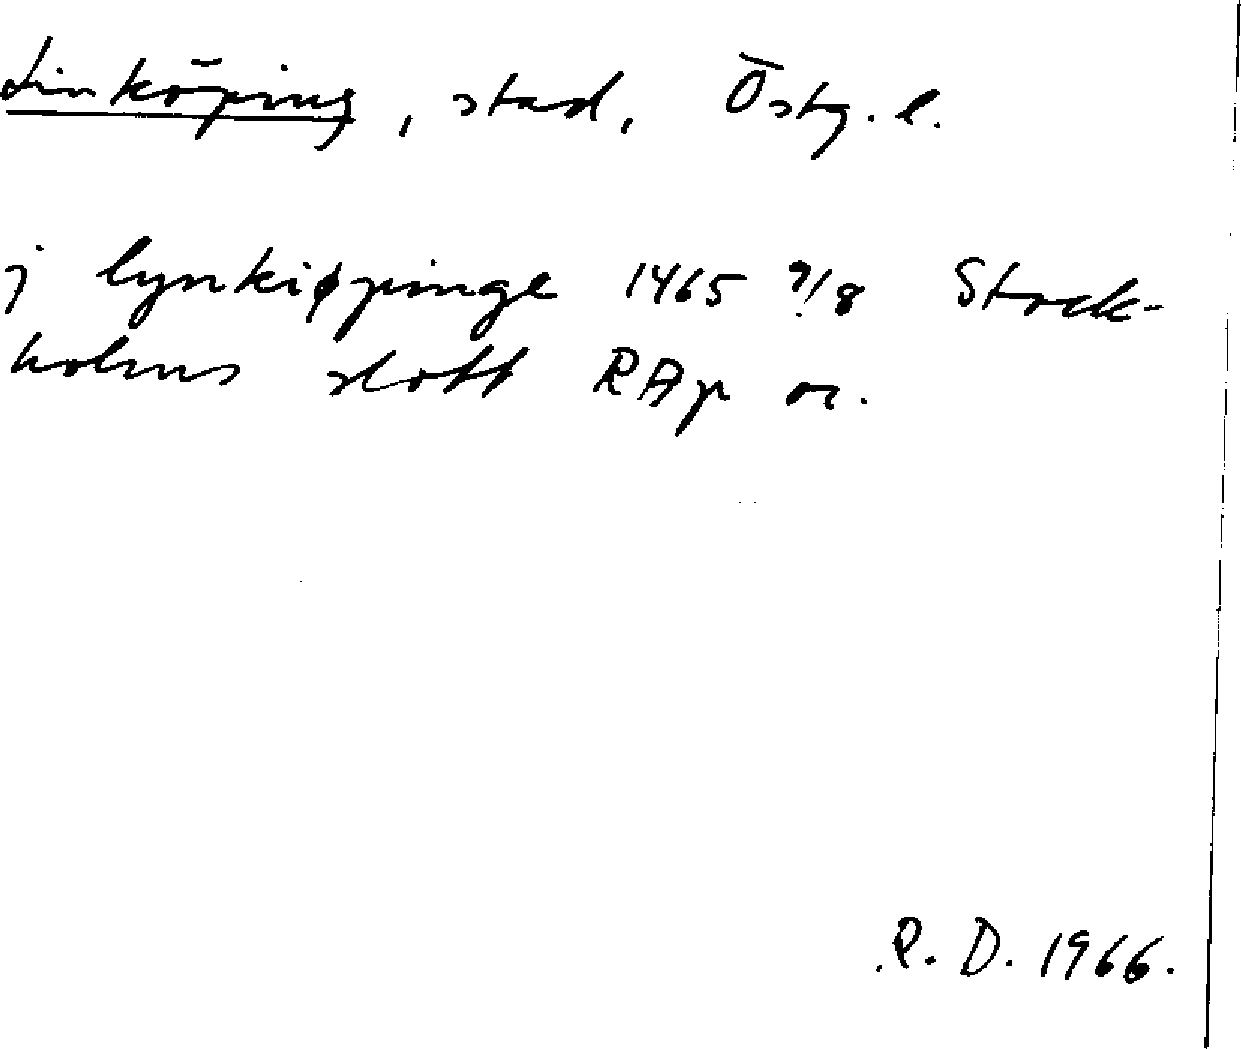 Linköping, stad, Östg. l.
j lynkiøpinge 1465 9/8 Stock-
holms slott RAp or.
R. D. 1966.